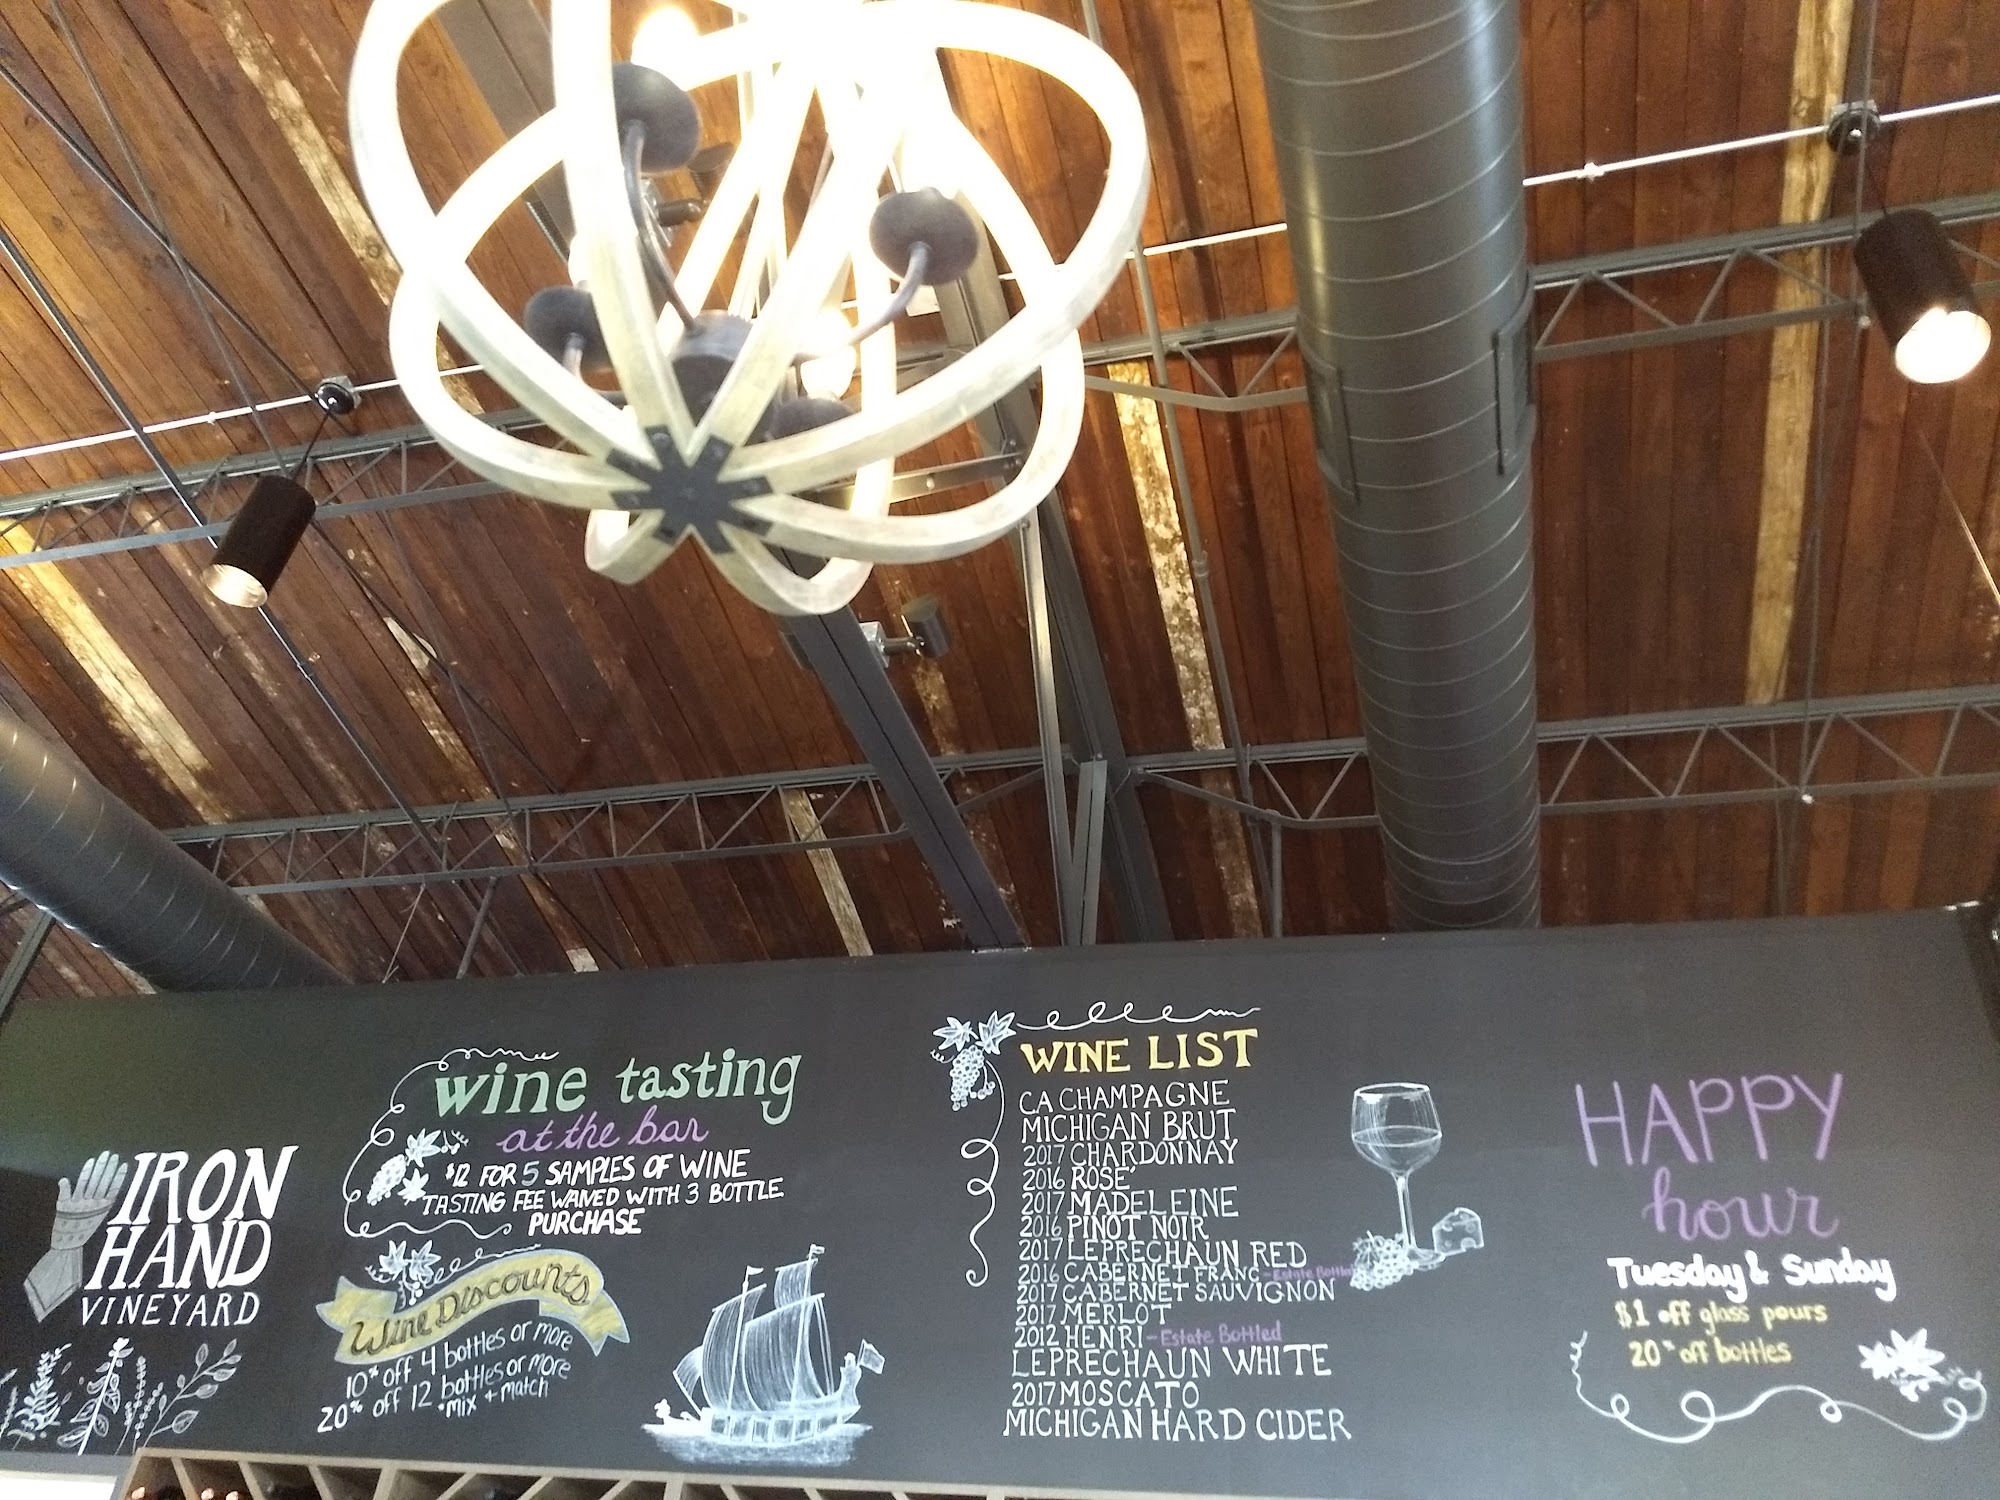 IRON
HAND
VINEYARD
wine tasting
at the bar
$12 FOR 5 SAMPLES OF WINE
TASTING FEE WAIVED WITH 3 BOTTLE
PURCHASE
Wine Discounts
10% off 4 bottles or more
20% off 12 bottles or more
*mix + match
WINE LIST
CA CHAMPAGNE
MICHIGAN BRUT
2017 CHARDONNAY
2016 ROSÉ
2017 MADELEINE
2016 PINOT NOIR
2017 LEPRECHAUN RED
2016 CABERNET FRANC - Estate Bottled
2017 CABERNET SAUVIGNON
2017 MERLOT
2012 HENRI - Estate Bottled
LEPRECHAUN WHITE
2017 MOSCATO
MICHIGAN HARD CIDER
HAPPY
hour
Tuesday & Sunday
$1 off glass pours
20% off bottles